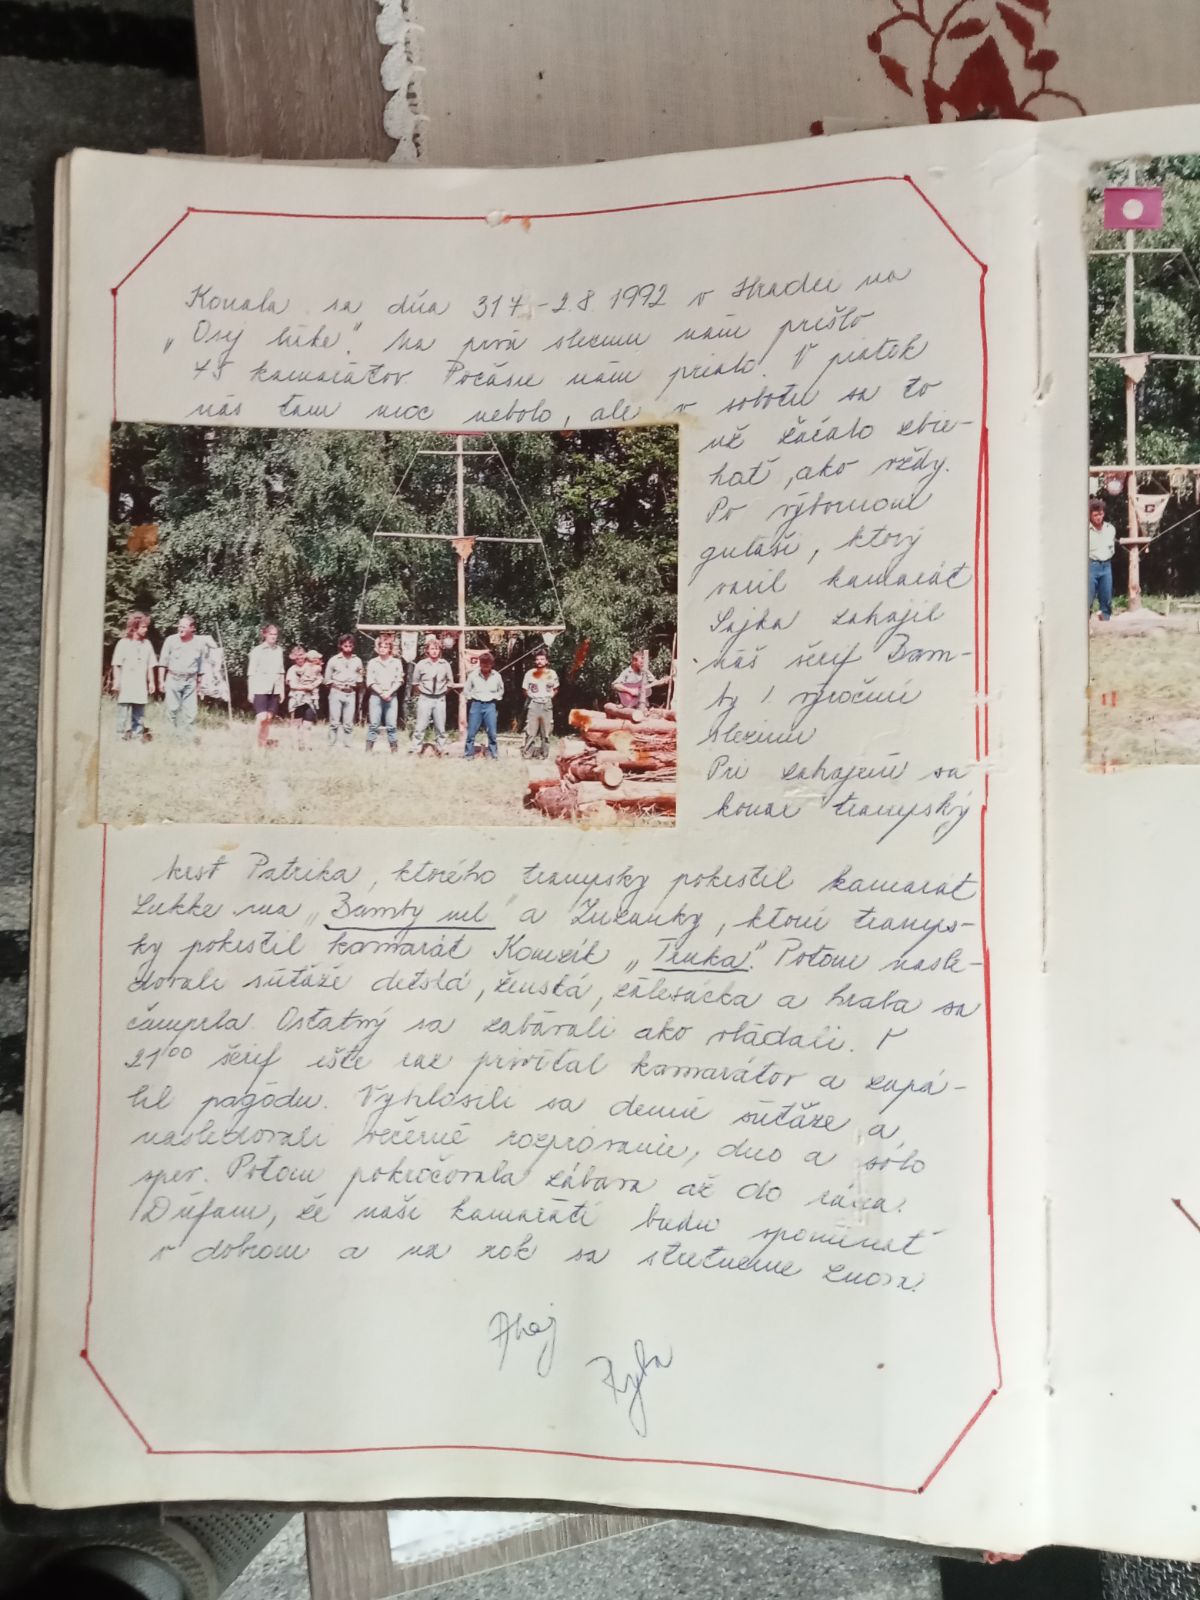 Konala sa dňa 31 7 - 2.8.1992 v Hradci na
„Osej lúke". Na prvú slezinu nám prišlo
45 kamarátov. Počásie nám prialo. V piatok
nás tam moc nebolo, ale v sobotu sa to
už začalo zbie-
hať, ako vždy.
Po výbornom
guláši, ktorý
varil kamarát
Sajka zahájil
náš šerif Bam-
by 1. výročnú
slezinu
Pri zahájení sa
konal trampský
krst Patrika, ktorého trampsky pokrstil kamarát
Lukke na „Bamby ml" a Zuzanky, ktorú tramps-
ky pokrstil kamarát Kamzík „Trnka". Potom nasle-
dovali súťaže detská, ženská, zálesácka a hrala sa
čamprla. Ostatný sa zabávali ako vládali. V
21°° šerif ešte raz privítal kamarátov a zapá-
lil pagódu. Vyhlásili sa denné súťaže a
nasledovali večerné rozprávanie, duo a sólo
spev. Potom pokračovala zábava až do rána.
Dúfam, že naši kamaráti budu spomínať
v dobrom a na rok sa stretneme znova.
Ahoj
Ryba